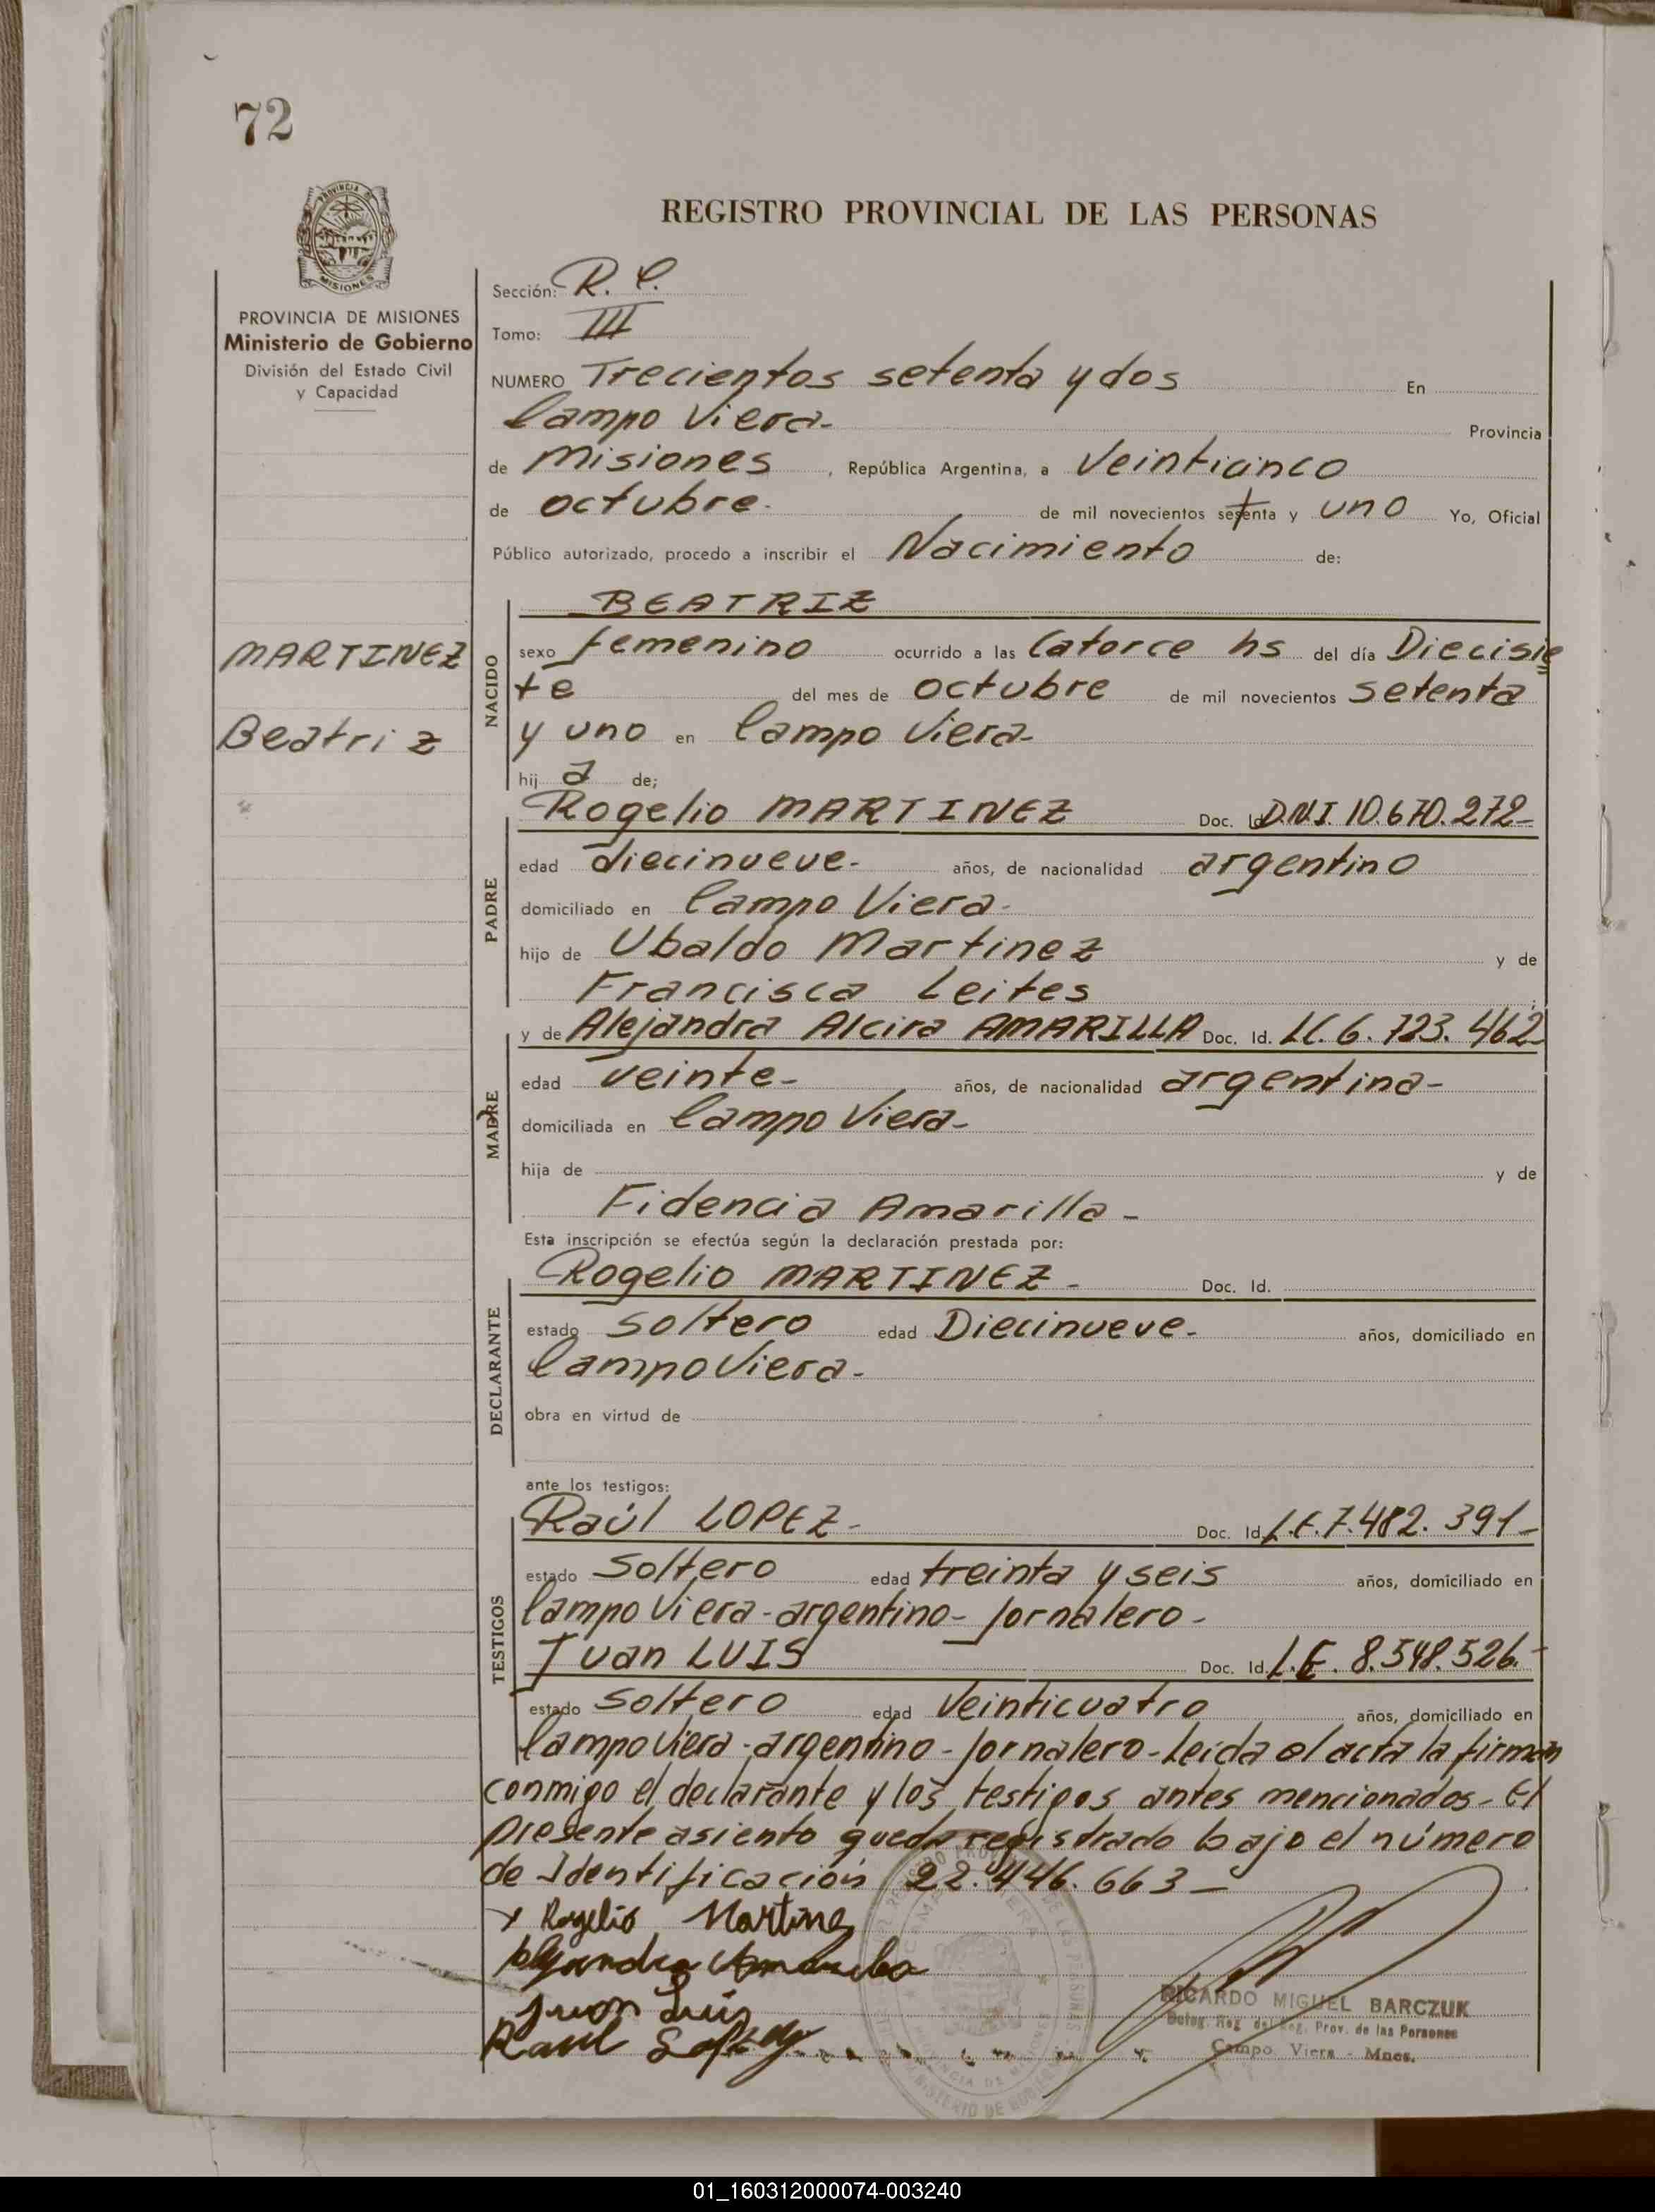 72
PROVINCIA DE
MISIONES
REGISTRO PROVINCIAL DE LAS PERSONAS
PROVINCIA DE MISIONES
Ministerio de Gobierno
División del Estado Civil
y Capacidad
MARTINEZ
Beatriz
Sección: R. C.
Tomo: III
NUMERO Trecientos setenta y dos En
Campo Viera- Provincia
de Misiones, República Argentina, a Veinticinco
de octubre- de mil novecientos setenta y uno Yo, Oficial
Público autorizado, procedo a inscribir el Nacimiento de:
NACIDO
BEATRIZ
sexo femenino ocurrido a las Catorce hs del día Diecisie
te del mes de octubre de mil novecientos setenta
y uno en Campo Viera-
hij a de;
PADRE
Rogelio MARTINEZ Doc. Id. D.N.I. 10.670.272-
edad diecinueve- años, de nacionalidad argentino
domiciliado en Campo Viera-
hijo de Ubaldo Martinez y de
Francisca Leites
MADRE
y de Alejandra Alcira AMARILLA Doc. Id. LC. 6.723.462-
edad veinte- años, de nacionalidad argentina-
domiciliada en Campo Viera-
hija de y de
Fidencia Amarilla-
Esta inscripción se efectúa según la declaración prestada por:
DECLARANTE
Rogelio MARTINEZ- Doc. Id.
estado soltero edad Diecinueve- años, domiciliado en
Campo Viera-
obra en virtud de
ante los testigos:
TESTIGOS
Raúl LOPEZ- Doc. Id. L.E. 7.482.391-
estado Soltero edad treinta y seis años, domiciliado en
Campo Viera-argentino-Jornalero-
Juan LUIS Doc. Id. L.E. 8.548.526.-
estado soltero edad Veinticuatro años, domiciliado en
Campo Viera-argentino-Jornalero-Leida el acta la firman
conmigo el declarante y los testigos antes mencionados-El
presente asiento queda registrado bajo el número
de Identificación 22.446.663-
x Rogelio Martinez
Alejandra Amarilla
Juan Luis
Raul Lopez
RICARDO MIGUEL BARCZUK
Deleg. Reg. del Reg. Prov. de las Personas
Campo Viera - Mnes.
01_160312000074-003240